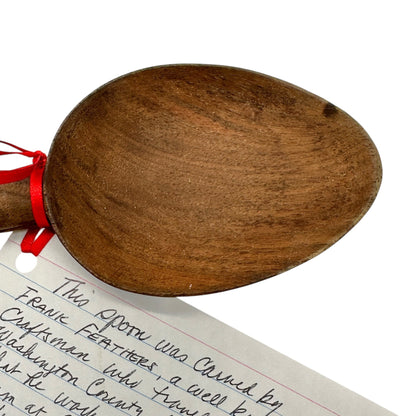 This spoon was Carved by
FRANK FEATHERS, a well k
Craftsman who
Washington County
at he work
at